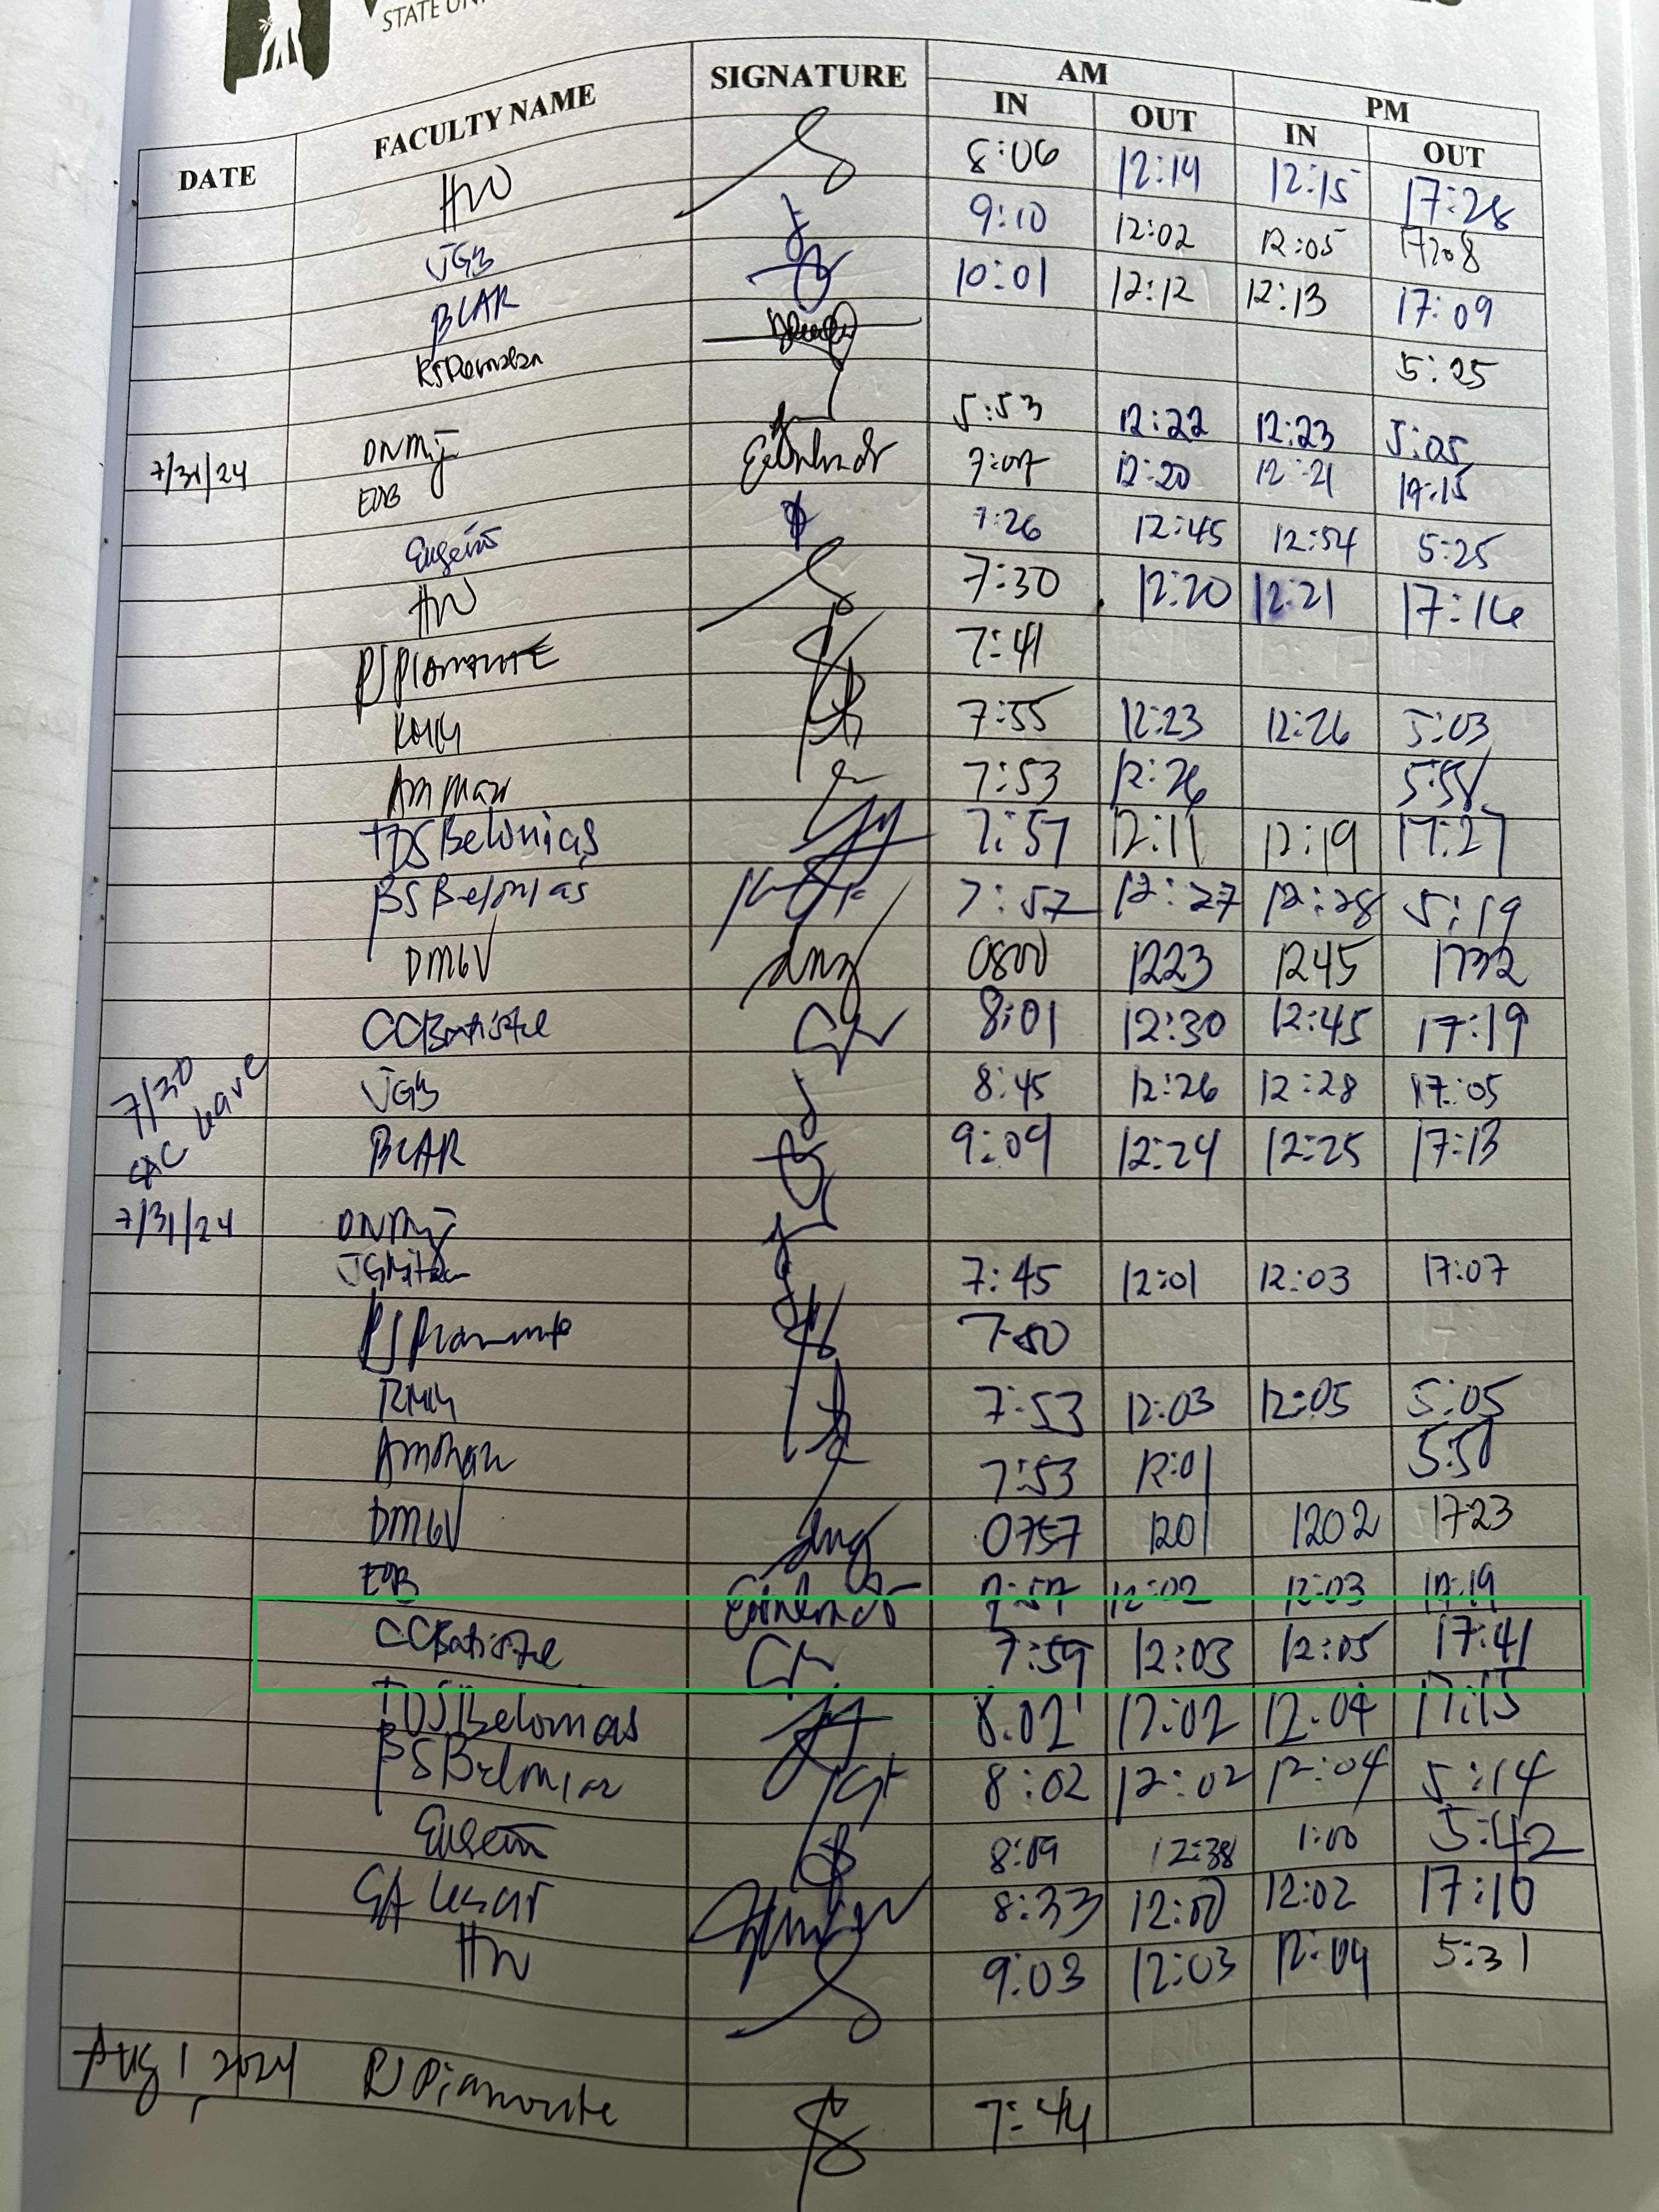 STATE UN
DATE FACULTY NAME SIGNATURE AM PM
IN OUT IN OUT
HW 8:06 12:14 12:15 17:28
JGB 9:10 12:02 12:05 17:08
BCAR 10:01 12:12 12:13 17:09
5:25
7/31/24 DNMij 5:53 12:22 12:23 5:05
EOB 7:07 12:20 12:21 17:15
Eugenio 7:26 12:45 12:54 5:25
HW 7:30 12:20 12:21 17:16
PJ Piamonte 7:41
RMM 7:55 12:23 12:26 5:03
7:53 12:26
TDSBelonias 7:57 12:11 12:19 17:27
BSBelonias 7:57 12:27 12:28 5:19
DMGV 0800 1223 1245 1732
CCBatistel 8:01 12:30 12:45 17:19
7/30 leave JGB 8:45 12:26 12:28 17:05
BCAR 9:09 12:24 12:25 17:13
7/31/24 DNMij
7:45 12:01 12:03 17:07
PJ Piamonte
RMM 7:53 12:03 12:05 5:05
7:53 12:01 5:50
DMGV 0757 1201 1202 1723
EOB 7:57 12:02 12:03 17:19
CCBatistel 7:59 12:03 12:05 17:41
TDSBelonias 8:02 12:02 12:04 17:15
BSBelonias 8:02 12:02 12:04 5:14
Eugenio 8:09 12:38 1:00 5:42
8:33 12:00 12:02 17:10
HW 9:03 12:03 12:04 5:31
Aug 1, 2024 PJ Piamonte 7:44